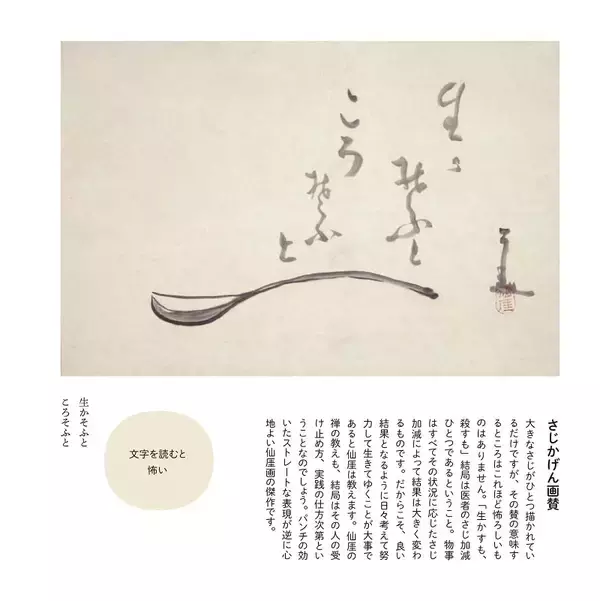 生か
そふと
ころ
そふ
と
さじかげん画賛
大きなさじがひとつ描かれてい
るだけですが、その賛の意味す
るところはこれほど怖ろしいも
のはありません。「生かすも、
殺すも」結局は医者のさじ加減
ひとつであるということ。物事
はすべてその状況に応じたさじ
加減によって結果は大きく変わ
るものです。だからこそ、良い
結果となるように日々考えて努
力して生きてゆくことが大事で
あると仙厓は教えます。仙厓の
禅の教えも、結局はその人の受
け止め方、実践の仕方次第とい
うことなのでしょう。パンチの効
いたストレートな表現が逆に心
地よい仙厓画の傑作です。
文字を読むと
怖い
生かそふと
ころそふと